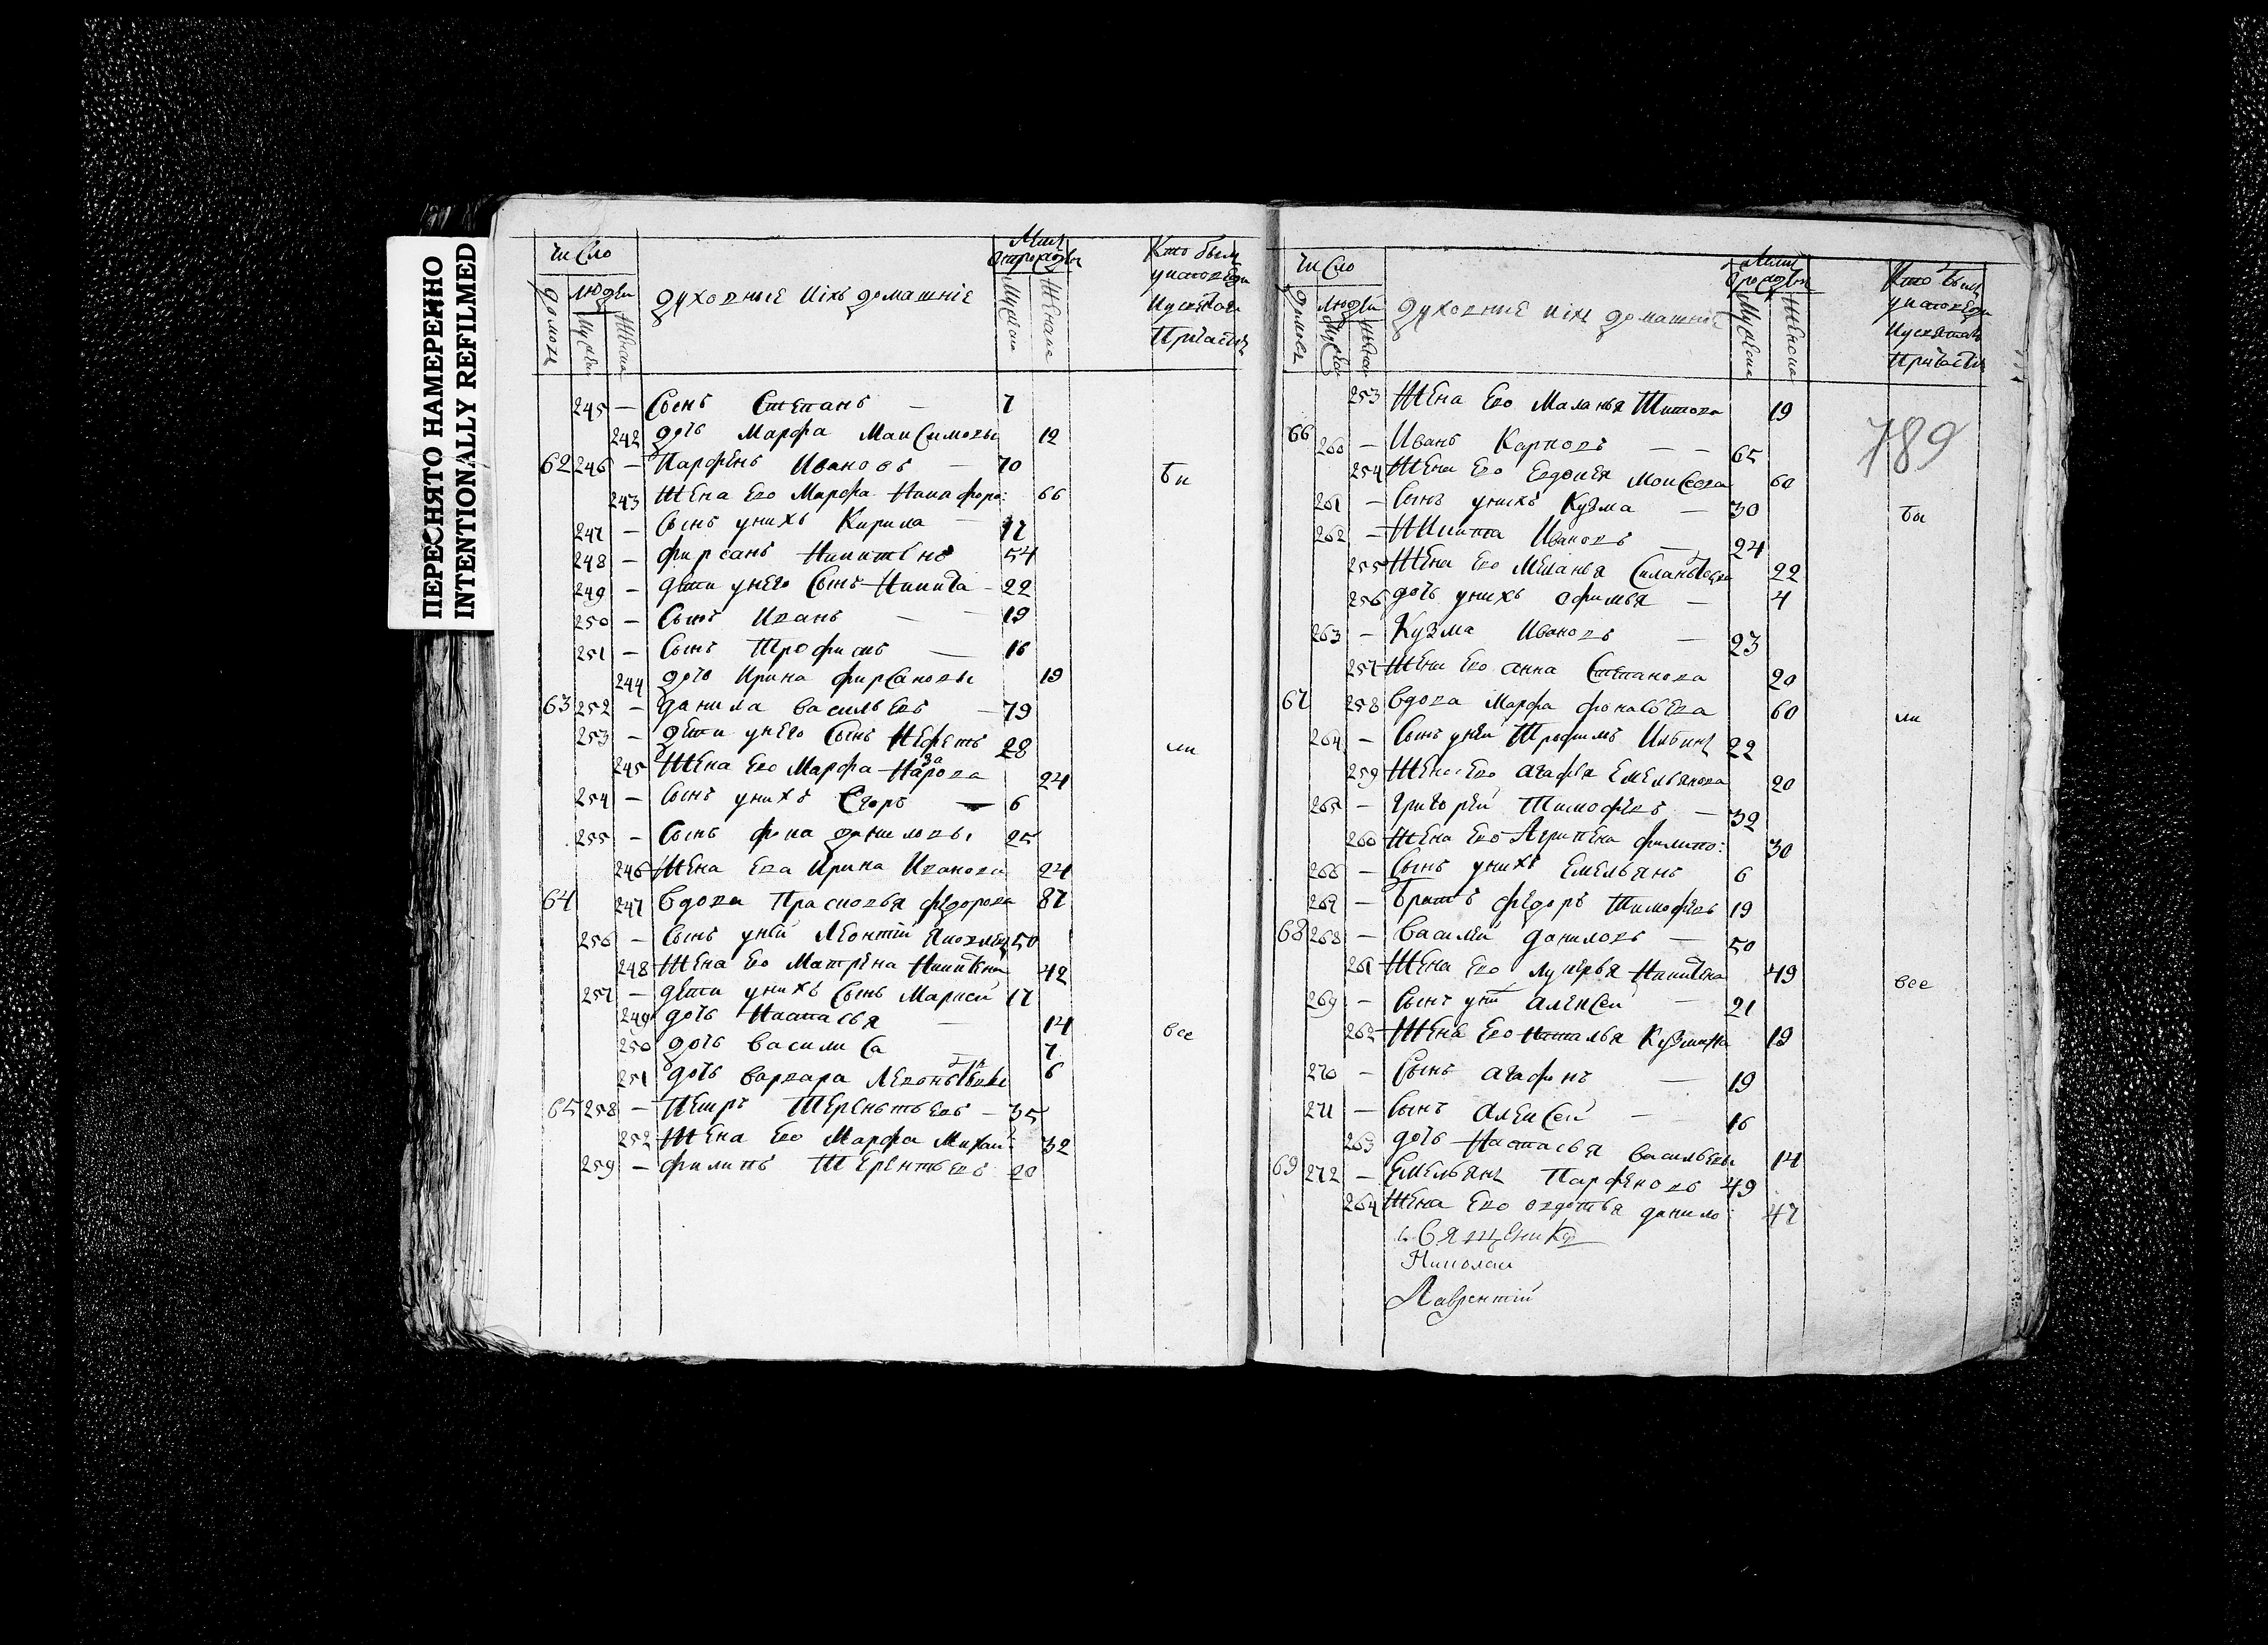 ПЕРЕСНЯТО НАМЕРЕННО
INTENTIONALLY REFILMED
число
людеи
домовъ
духовные иіхъ домашніе
Лита
отрожды
Кто былъ
уисповеди
Исвятаго
Причастія
245 — Сынъ Степанъ — 7
242 дочь Марфа Максимовы 12
62 246 — Парфенъ Ивановъ — 70 бы
243 Жена Ево Марфа Никифоро: 66
247 — Сынъ унихъ Кирила — 17
248 — фирсанъ Никитинъ 54
249 — дети унего Сынъ Никита — 22
250 — Сынъ Иванъ — 19
251 — Сынъ Трофимъ — 16
244 дочь Ирина фирсановы 19
63 252 — данила васильевъ — 79
253 — дети унего Сынъ 28 ли
245 Жена Ево Марфа Назарова 24
254 — Сынъ унихъ Егоръ — 6
255 — Сынъ фока даниловы 25
246 Жена Ева Ирина Иванова 24
64 247 вдова Прасковья федорова 87
256 — Сынъ уней Леонтій 50
248 Жена Ево Матрена Никитина 42
257 — дети унихъ Сынъ Маркей 17
249 дочь Настасья — 14 все
250 дочь василиса 7
251 дочь варвара 6
65 258 — Петръ Терентьевъ — 35
252 Жена Ево Марфа Михаи: 32
259 — филипъ Терентьевъ 20
число
людеи
домовъ
духовние иіхъ домашніе
Кто былъ
уисповеди
Исвятаго
Причастія
253 Жена Ево Маланья Титова 19
789
66 260 — Иванъ Карповъ — — 65
254 Жена Ево Евдокея Моисеева 60
261 — Сынъ унихъ Кузма — 30 бы
262 — Никита Ивановъ — 24
255 Жена Ево Меланья 22
256 дочь унихъ офимья — 4
263 — Кузма Ивановъ — 23
257 Жена Ево анна Степанова 20
67 258 вдова Марфа 60 ли
264 — Сынъ уней Трофимъ Ильинъ 22
259 Жена Ево агафья Емельянова 20
265 — григорей Тимофевъ — 32
260 Жена Ево Агрипена филипо: 30
266 — Сынъ унихъ Емельянъ 6
267 — братъ федоръ Тимофевъ 19
68 268 — василей даниловъ — 50
261 Жена Ево лукерья Никитина 49 все
269 — Сынъ алексеи — 21
262 Жена Ево Наталья Кузмина 19
270 — Сынъ агафонъ — 19
271 — Сынъ алексей — 16
263 дочь Настасья васильевы 14
69 272 — Емельянъ Парфеновъ 49
264 Жена Ево овдотья данило: 47
Священикъ
Николаи
Лаврентій